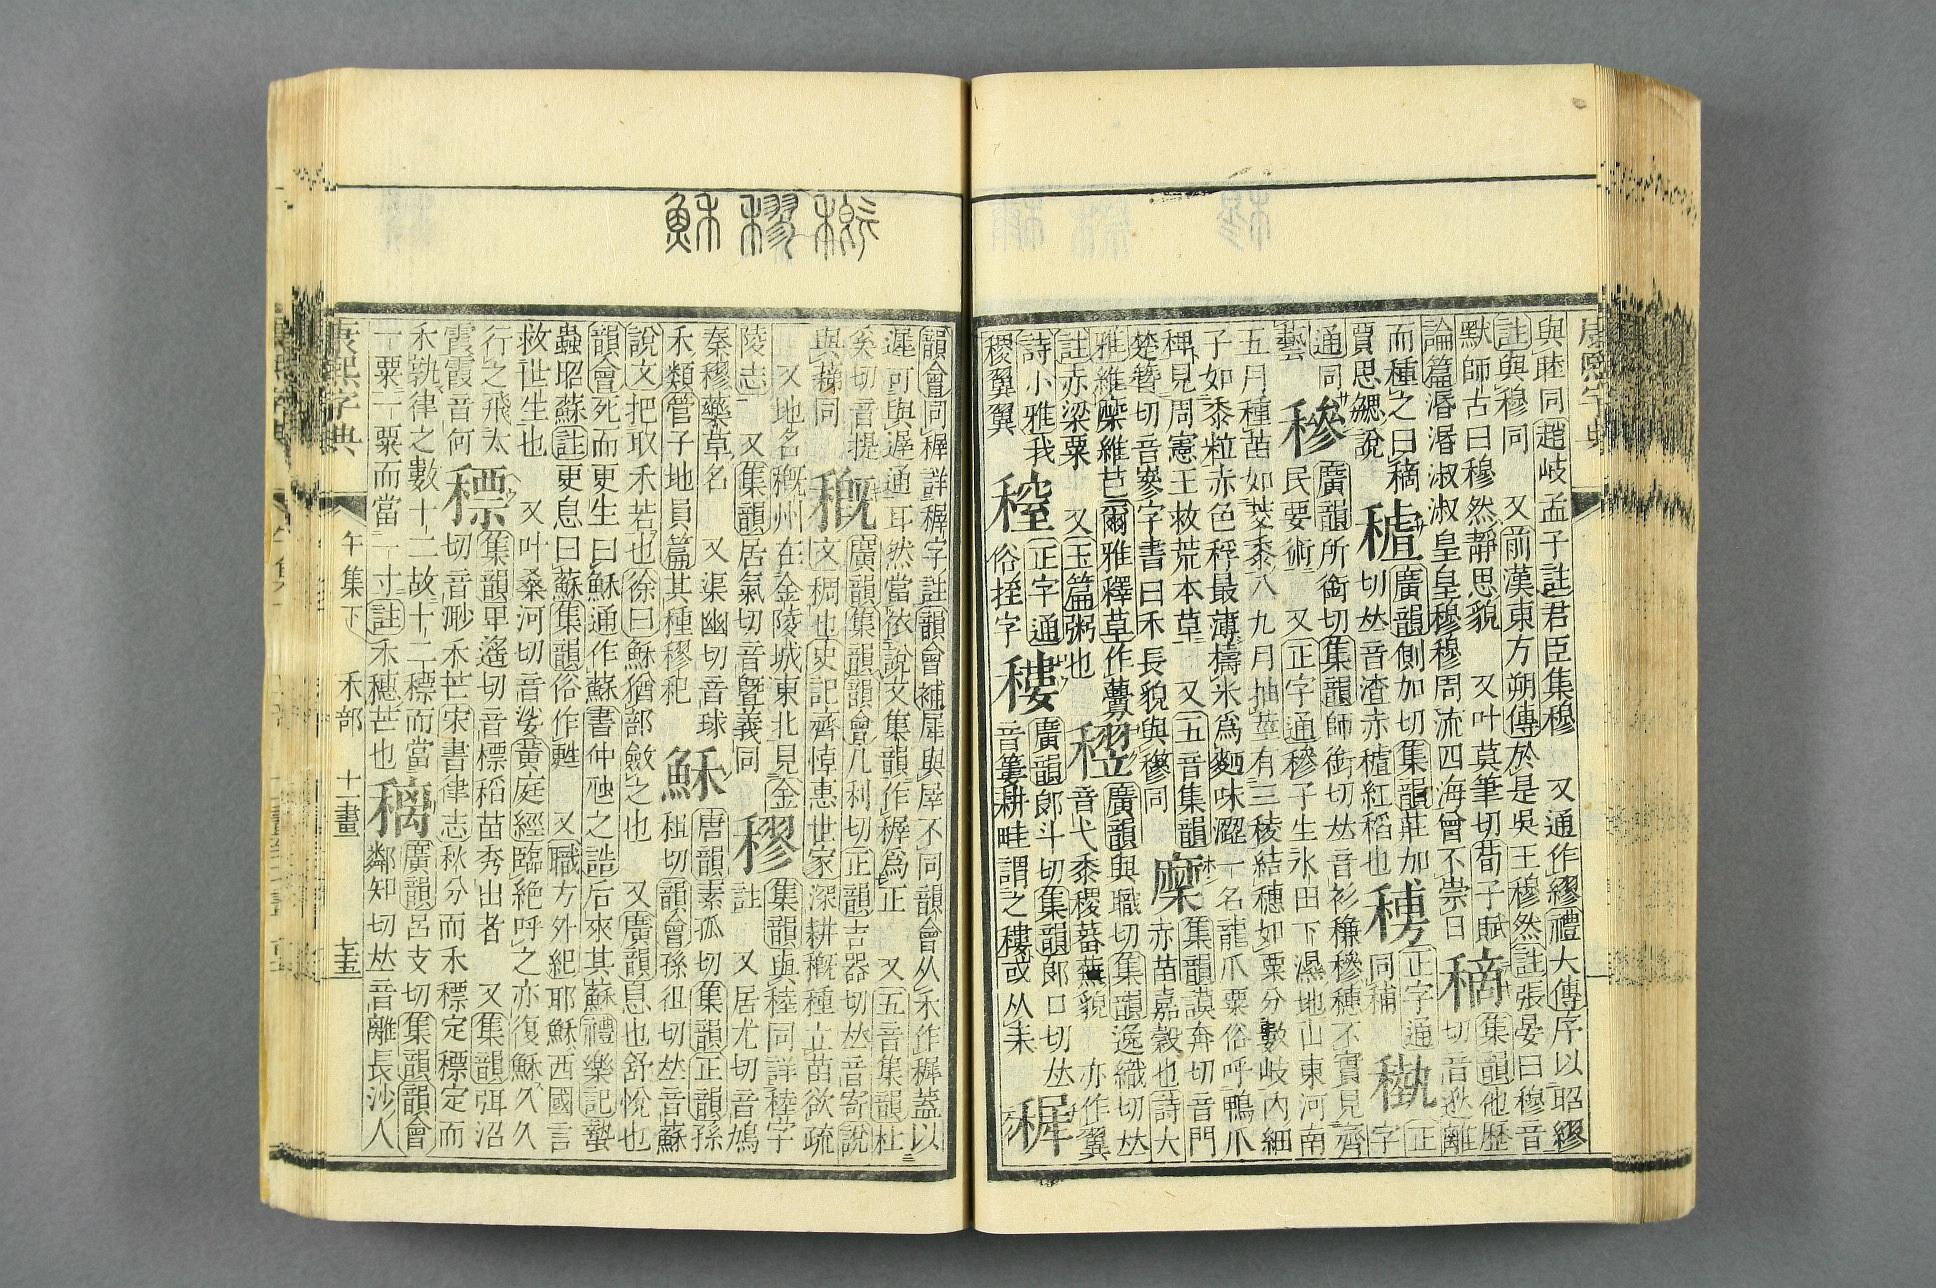 康熙字典
與睦同趙岐孟子註君臣集穆 又通作繆禮大傳序以昭繆
註與穆同 又前漢東方朔傳於是吳王穆然註張晏曰穆音
默師古曰穆然靜思貌 又叶莫筆切荀子賦 集韻他歷
論篇湣湣淑淑皇皇穆穆周流四海曾不崇日 切音逖離
而種之曰 廣韻側加切集韻莊加 正字通 正
賈思勰說 切𠀤音渣赤 紅稻也 同 字
通同 廣韻所銜切集韻師銜切𠀤音衫穇穄不實見齊
藝 穇 民要術 又正字通穇子生水田下濕地山東河南
五月種苗如茭黍八九月抽莖有三稜結穗如粟分數岐內細
子如黍粒赤色稃最薄擣米爲麪味澀一名龍爪粟俗呼鴨爪
稗見周憲王救荒本草 又五音集韻 集韻謨奔切音門
楚簪切音嵾字書曰禾長貌與穇同 穈 赤苗嘉穀也詩大
雅維穈維芑爾雅釋草作虋 廣韻與職切集韻逸織切𠀤
註赤梁粟 又玉篇粥也 䆊 音弋黍稷蕃蕪貌 亦作翼
詩小雅我 正字通 廣韻郎斗切集韻郎口切𠀤
稷翼翼 俗挃字 音簍耕畦謂之 或从耒
韻會同稺詳稺字註韻會補犀與㞒不同韻會从禾作稺蓋以
遲可與遟通耳然當依說文集韻作稺爲正 又五音集韻杜
奚切音提 廣韻集韻韻會几利切正韻吉器切𠀤音寄說
與蕛同 穊 文稠也史記齊悼惠世家深耕穊種立苗欲疏
又地名穊州在金陵城東北見金 集韻與稑同詳稑字
陵志 又集韻居氣切音曁義同 穋 註 又居尤切音鳩
秦穋藥草名 又渠幽切音球 唐韻素孤切集韻正韻孫
禾類管子地員篇其種穋秬 穌 租切韻會孫徂切𠀤音蘇
說文把取禾若也徐曰穌猶部斂之也 又廣韻息也舒悅也
韻會死而更生曰穌通作蘇書仲虺之誥后來其蘇禮樂記蟄
蟲昭蘇註更息曰蘇集韻俗作甦 又職方外紀耶穌西國言
救世主也 又叶桑河切音娑黃庭經臨絕呼之亦復穌久久
行之飛太 集韻畢遙切音標稻苗秀出者 又集韻弭沼
霞霞音何 標 切音渺禾芒宋書律志秋分而禾標定標定而
禾孰律之數十二故十二標而當 廣韻呂支切集韻韻會
一粟一粟而當一寸註禾穗芒也 穲 鄰知切𠀤音離長沙人
康熙字典 午集下 禾部 十一畫